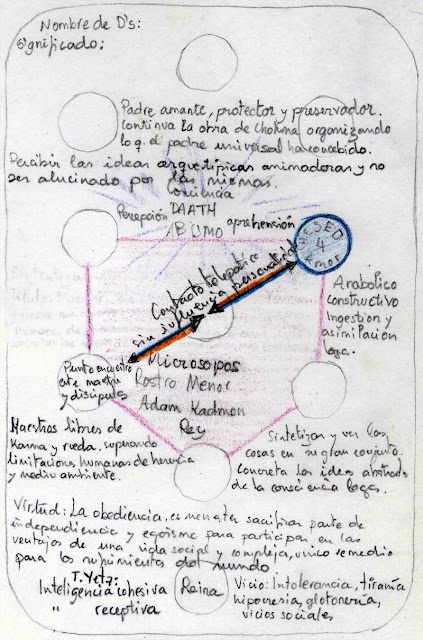 Nombre de D's:
Significado:
Padre amante, protector y preservador.
Continua la obra de Chokma organizando
lo q. el padre universal ha concebido.
Percibir las ideas arquetípicas animadoras y no
ser alucinado por las mismas.
Conciencia
Percepción DAATH aprehensión
ABISMO
CHESED
4
Amor
Contacto telepático
sin influencia personalidad
Anabolico
constructivo
Ingestion y
asimilación
Punto encuentro
entre maestro
y discípulo
Microsopos
Rostro Menor
Adam Kadmon
Rey
Maestros libres de
Karma y rueda, superando
limitaciones humanas de herencia
y medio ambiente.
Sintetizar y ver las
cosas en su gran conjunto.
Concreta las ideas abstractas
de la consciencia
Virtud: La obediencia, es menester sacrificar parte de
independencia y egoismo para participar en las
ventajas de una vida social y compleja, unico remedio
para los sufrimientos del mundo.
T. Yetz:
Inteligencia cohesiva
" receptiva
Reina
Vicio: Intolerancia, tiranía
hipocresia, glotonería,
vicios sociales